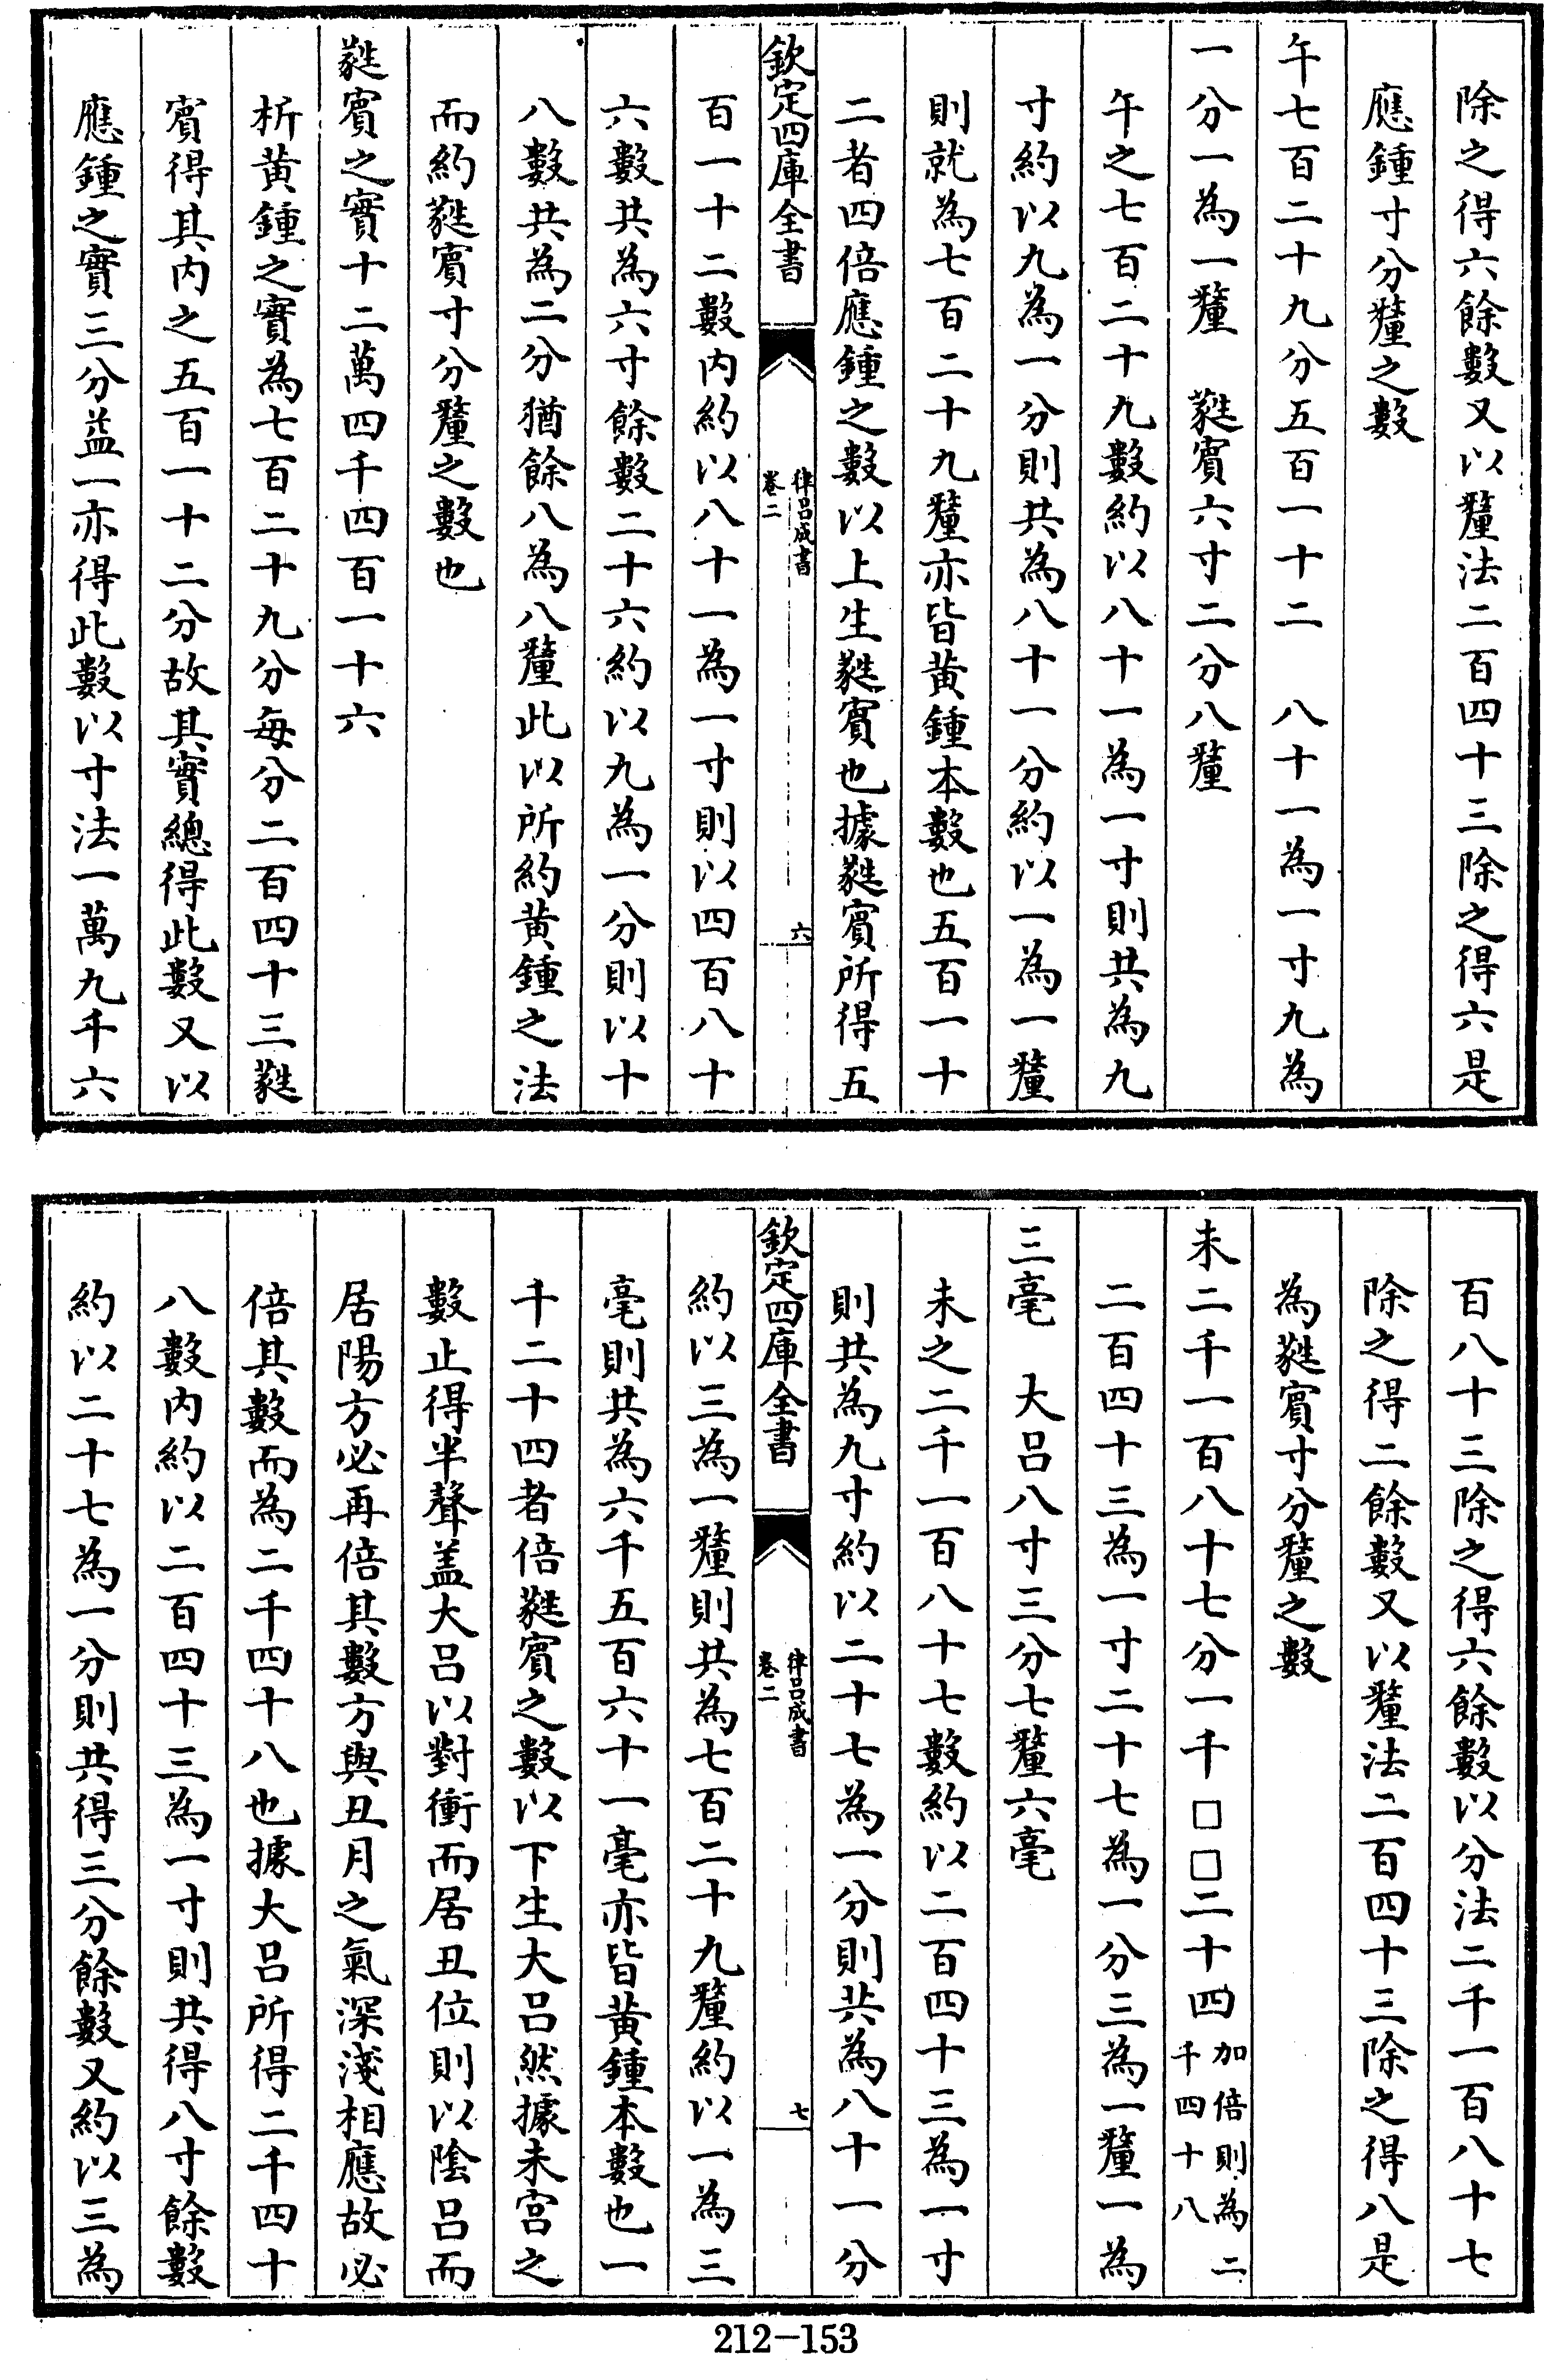 除之得六餘數又以釐法二百四十三除之得六是
應鍾寸分釐之數
午七百二十九分五百一十二　八十一為一寸九為
一分一為一釐　蕤賓六寸二分八釐
午之七百二十九數約以八十一為一寸則共為九
寸約以九為一分則共為八十一分約以一為一釐
則就為七百二十九釐亦皆黄鍾本數也五百一十
二者四倍應鍾之數以上生蕤賓也據蕤賓所得五
欽定四庫全書
律吕成書
卷二
六
百一十二數内約以八十一為一寸則以四百八十
六數共為六寸餘數二十六約以九為一分則以十
八數共為二分猶餘八為八釐此以所約黄鍾之法
而約蕤賓寸分釐之數也
蕤賓之實十二萬四千四百一十六
析黄鍾之實為七百二十九分每分二百四十三蕤
賓得其内之五百一十二分故其實總得此數又以
應鍾之實三分益一亦得此數以寸法一萬九千六
百八十三除之得六餘數以分法二千一百八十七
除之得二餘數又以釐法二百四十三除之得八是
為蕤賓寸分釐之數
未二千一百八十七分一千□□二十四加倍則為二千四十八
二百四十三為一寸二十七為一分三為一釐一為
三毫　大吕八寸三分七釐六毫
未之二千一百八十七數約以二百四十三為一寸
則共為九寸約以二十七為一分則共為八十一分
欽定四庫全書
律吕成書
卷二
七
約以三為一釐則共為七百二十九釐約以一為三
毫則共為六千五百六十一毫亦皆黄鍾本數也一
千二十四者倍蕤賓之數以下生大吕然據未宫之
數止得半聲盖大吕以對衝而居丑位則以陰吕而
居陽方必再倍其數方與丑月之氣深淺相應故必
倍其數而為二千四十八也據大吕所得二千四十
八數内約以二百四十三為一寸則共得八寸餘數
約以二十七為一分則共得三分餘數又約以三為
212-153